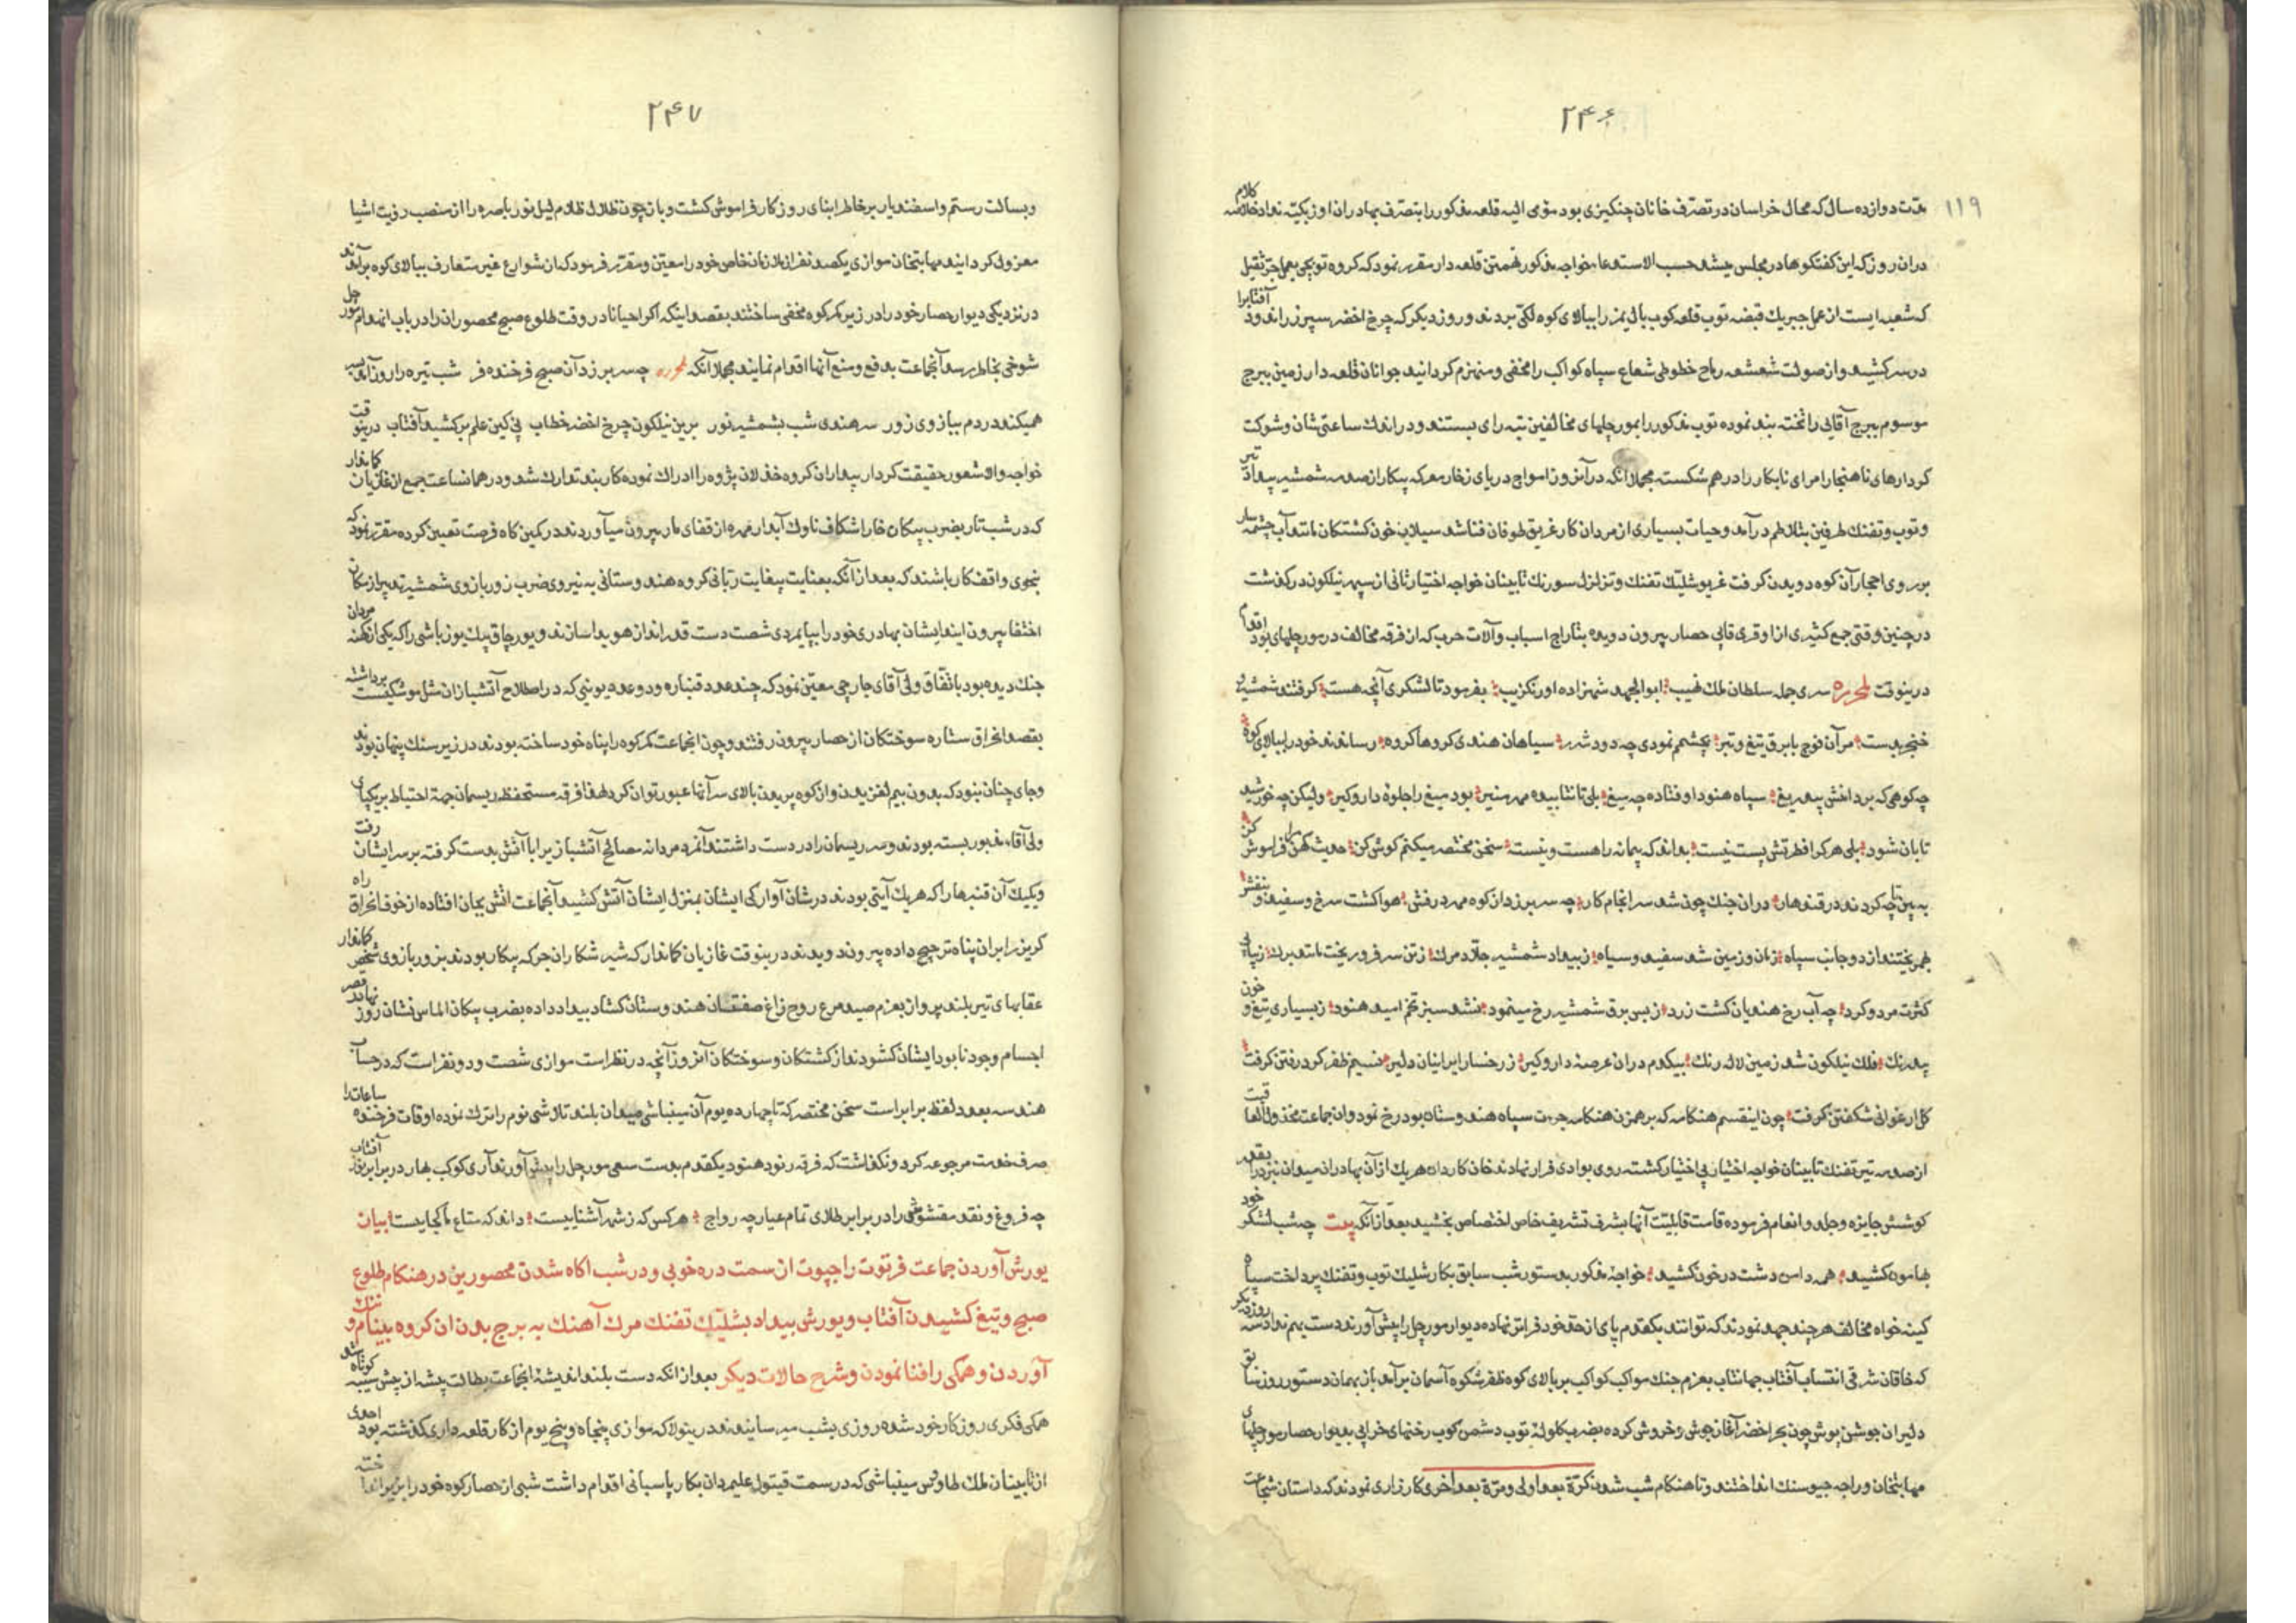 ۲۴۶
۱۱۹
مدّت دوازده سال که محال خراسان در تصرّف خانان چنکیزی بود مومی الیه قلعه مذکور را بتصرّف بهادران اوزبکیّه نداد خلاصه کلام
دران روز که این کفتکوها در مجلس چیده شد حسب الاستدعا خواجه مذکور تهمتن قلعه دار مقرر نمود که کروه توپچی بعمل جرّثقیل
که شعبه ایست از عمل جبر یک قبضه توپ قلعه کوب بالیمز را ببالای کوه لکّی بردند و روز دیکر که چرخ اخضر سپر زراندود آفتابرا
در سر کشید و از صولت شعشعه رماح خطوطی شعاع سپاه کواکب را مخفی و منهزم کردانید جوانان قلعه دار زمین ببرج
موسوم ببرج آقالی را تخته بند نموده توپ مذکور را بمورچلهای مخالفین تبه رای بستند و در اندک ساعتی شان و شوکت
کردارهای ناهنجار امرای نابکار را در هم شکسته مجملا انکه در آنروز امواج دریای زخار معرکه پیکار از صدمه شمشیر بیداد تیر
و توپ و تفنک طرفین بتلاطم درآمد و حیات بسیاری از مردان کار غریق طوفان فنا شد سیلاب خون کشتکان مانند آب چشمه سار
بر روی احجار آن کوه دویدن کرفت غریو شلیّک تفنک و تزلزل سورنک تابینان خواجه اختیار ثانی از سپهر نیلکون در کذشت
در چنین وقتی جمع کثیری از اوقری قاپی حصار بیرون دویده بتاراج اسباب و آلات حرب که از فرقه مخالف در مورچلهای بود اقدام
درینوقت لمحرره سری جمله سلطان ملک نهیب ابوالجهد شهزاده اورنکزیب بفرمود تا لشکری آنچه هست کرفتند شمشیر و
خنجر بدست مر آن فوج با برق تیغ و تبر بچشم نمودی چه دود شرر سپاهان هندی کروها کروه رساندند خود را ببالای کوه
چه کوهی که بر داخش بیدریغ سپاه هنود اوفتاده چه میغ بلی تا نتابیده مهر منیر بود میغ را جلوه دار و کیر ولیکن چه خورشید
تابان شود بلی هر کرا فطرتش پست نیست بداند که پیمانه را هست و نیست سخن مختصر میکنم کوش کن حدیث کهن را فراموش کن
به بین تا چه کردند در قندهار دران جنک چون شد سر انجام کار چه سر بر زد از کوه مهر درفش هوا کشت سرخ و سفید و بنفش
بهم ریختند از دو جانب سپاه زمان و زمین شد سفید و سیاه ز بیداد شمشیر جلاد مرک ز تن سر فرو ریخت مانند برک
کثرت مرد و کرد چه آب رخ هندیان کشت زرد ز بس برق شمشیر رخ مینمود نشد سبز تخم امید هنود ز بسیاری تیغ و خون
بیدرنک فلک نیلکون شد زمین لاله رنک بیکدم دران عرصه دار و کیر ز رخسار ایرانیان دلیر نسیم ظفر کرد رفتن کرفت
کل ارغوانی شکفتن کرفت چون اینقسم هنکامه که بر همزن هنکامه جرءت سپاه هندوستان بود رخ نمود و ان جماعت مخذول العاقبت
از صدمه تیر تفنک تابینان خواجه اختیار بی اختیار کشته روی بوادی فرار نهادند خان کاردان هر یک از آن بهادران میدان نبرد را بقدر
کوشش جایزه و جلدو انعام فرموده قامت قابلیّت آنها بشرف تشریف خاص اختصاص بخشید بعد از آنکه بیت چه شب لشکر خود
بهامون کشید همه دامن دشت در خون کشید خواجه مذکور بدستور شب سابق بکار شلیک توپ و تفنک پرداخت سپاه
کینه خواه مخالف هر چند جهد نمودند که توانند یکقدم پای از حدّ خود فراتر نهاده دیوار مورچل را پیش آورند دست بهم نداد روز دیکر
که خاقان شرقی انتساب آفتاب جهانتاب بعزم جنک مواکب کواکب بر بالای کوه ظفر شکوه آسمان برآمد باز بهمان دستور روز سابق
دلیران جوشن پوش چون بحر اخضر آغاز جوش و خروش کرده بضرب کلوله توپ دشمن کوب رخنهای خرابی بدیوار حصار مورچلهای
مهابتخان و راجه جیوسنک انداختند و تا هنکام شب شدن کرّة بعد اولی و مرّة بعد اخری کارزاری نمودند که داستان شجاعت
۲۴۷
و بسالت رستم و اسفندیار بر خاطر ابنای روزکار فراموش کشت و باز چون ظلال ظلام لیل نور باصره را از منصب رؤیت اشیا
معزول کردانید مهابتخان موازی یکصد نفر از ملازمان خاص خود را معیّن و مقرّر فرمود که از شوارع غیر متعارف ببالای کوه برآمدند
در نزدیکی دیوار حصار خود را در زیر کمر کوه مخفی ساختند بقصد اینکه اکر احیانا در وقت طلوع صبح محصوران را در باب انهدام مورچل
شوخی بخاطر رسد آنجماعت بدفع و منع آنها اقدام نمایند مجملا آنکه لمحرره چه سر بر زد آن صبح فرخنده فر شب تیره را روز آمد بسر
همیکند در دم ببازوی زور سر هندی شب بشمشیر نور برین نیلکون چرخ اخضر خطاب پی کین علم بر کشید آفتاب درینوقت
خواجه والا شعور حقیقت کردار بیداران کروه خذلان پژوه را ادراک نموده کاربند تدارک شد و در همان ساعت جمع از غازیان کماندار
که در شب تار بضرب پیکان خارا شکاف ناوک آبدار مهره از قفای مار بیرون میآوردند در کمین کاه فرصت تعیین کرده مقرر نمود که
بنحوی واقف کار باشند که بعد از آنکه بعنایت بیغایت ربّانی کروه هندوستانی به نیروی ضرب زور بازوی شمشیر تدبیر از مکان
اختفا بیرون ایند ایشان بهادری خود را بپایمردی شصت دست قدر انداز هویدا سازند و یورچاق بیک یوزباشی را که یکی از کهنه مردان
جنک دیده بود باتّفاق ولی آقای جارچی معیّن نمود که چند عدد قنباره و دو عدد یوشی که در اصطلاح آتشبازان مثل موشکیست برداشته
بقصد احراق ستاره سوختکان از حصار بیرون رفتند و چون انجماعت کمر کوه را پناه خود ساخته بودند در زیر سنک پنهان بودند
و جای چنان نبود که بدون بیم لغزیدن و از کوه پریدن بالای سر آنها عبور توان کرد لهذا فرقه مستحفظ ریسمان جهة احتیاط بر یکپای
ولی آقاء مذبور بسته بودند و سر ریسمان را در دست داشتند آنمرد مردانه مصالح آتشبازی را با آتش بدست کرفته بر سر ایشان رفت
و یکیک آن قنبرها را که هر یک آیتی بودند در شان آوارکی ایشان بمنزل ایشان آتش کشید آنجماعت اتش بجان افتاده از خوف احراق راه
کریز را بر ان پناه ترجیح داده بیرون دویدند درینوقت غازیان کماندار که شیر شکاران جرکه پیکار بودند بزور بازوی شخص کماندار
عقابهای تیر بلند پرواز بعزم صید مرغ روح زاغ صفتان هندوستان کشاد بیداد داده بضرب پیکان الماس نشان روز
اجسام وجود نابود ایشان کشودند از کشتکان و سوختکان آنروز آنچه در نظر است موازی شصت و دو نفر است که در حساب
هندسه بعدد لفظ برابر است سخن مختصر که تا چهارده یوم آن مینباشی میدان بلند تلاشی نوم را ترک نموده اوقات فرخنده ساعات را
صرف خدمت مرجوعه کرد و نکذاشت که فرقه رنود هنود یکقدم بدست سعی مورچل را پیش آورند آری کوکب بهار در برابر نور آفتاب
چه فروغ و نقد مغشوشی را در برابر طلای تمام عیار چه رواج هر کس که ز شهر آشناییست داند که متاع ما کجاییست بیان
یورش آوردن جماعت فرتوت راجپوت از سمت دره خوبی و در شب اکاه شدن محصورین در هنکام طلوع
صبح و تیغ کشیدن آفتاب و یورش بیداد بشلیّک تفنک مرک آهنک به برج بدن ان کروه بینام و ننک
آوردن و همکی را فنا نمودن و شرح حالات دیکر بعد از انکه دست بلند اندیشهٔ انجماعت بطالت پیشه از پیش سیبه کوتاه شد
همکی فکری روزکار خود شده روزی بشب میرسانیدند درینولا که موازی پنجاه و پنج یوم از کار قلعه داری کذشته بود احدی
از تابینان ملک طاوس مینباشی که در سمت قیتول علیمردان بکار پاسبانی اقدام داشت شبی از حصار کوه خود را بزیر انداخته